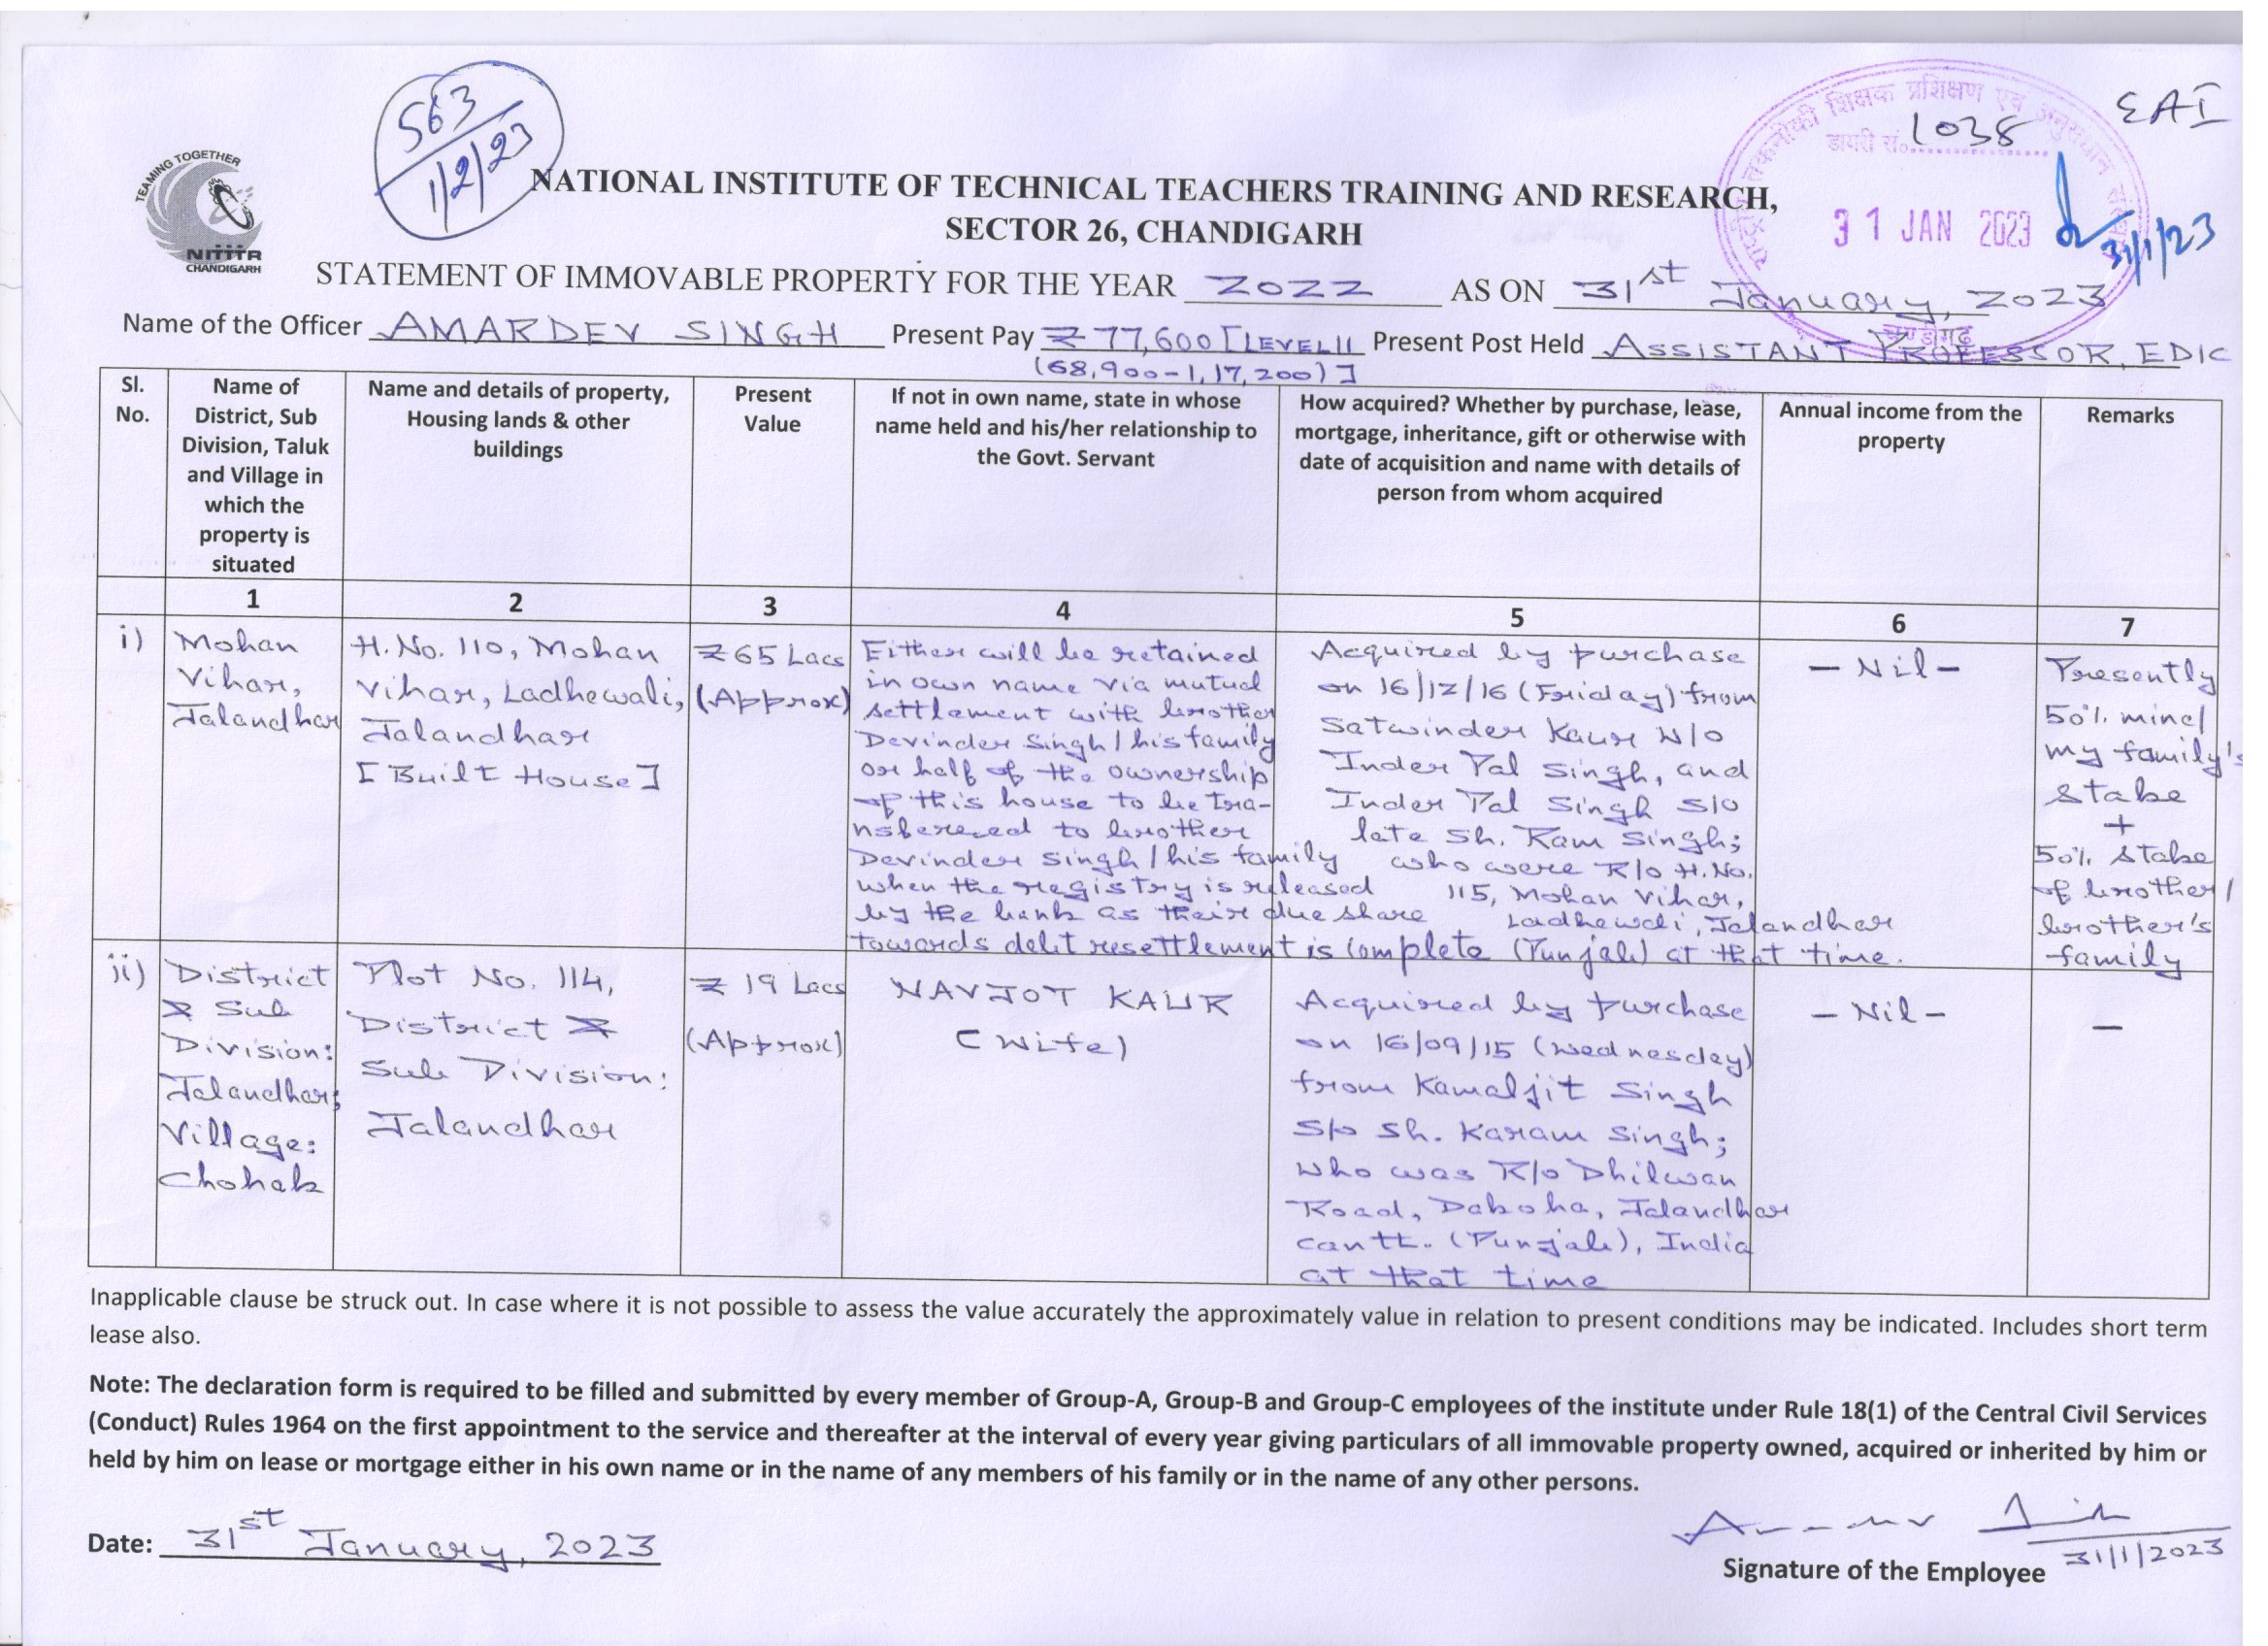 563
1/2/23
TEAMING TOGETHER
NITTTR
CHANDIGARH
राष्ट्रीय तकनीकी शिक्षक प्रशिक्षण एवं अनुसंधान संस्थान
डायरी सं. 1038
31 JAN 2023
चण्डीगढ़
EAI
31/1/23
NATIONAL INSTITUTE OF TECHNICAL TEACHERS TRAINING AND RESEARCH,
SECTOR 26, CHANDIGARH
STATEMENT OF IMMOVABLE PROPERTY FOR THE YEAR 2022 AS ON 31st January, 2023
Name of the Officer AMARDEV SINGH Present Pay ₹ 77,600 [LEVEL 11 Present Post Held ASSISTANT PROFESSOR, EDIC
(68,900-1,17,200)]
Sl.
No.
Name of
District, Sub
Division, Taluk
and Village in
which the
property is
situated
Name and details of property,
Housing lands & other
buildings
Present
Value
If not in own name, state in whose
name held and his/her relationship to
the Govt. Servant
How acquired? Whether by purchase, lease,
mortgage, inheritance, gift or otherwise with
date of acquisition and name with details of
person from whom acquired
Annual income from the
property
Remarks
1 2 3 4 5 6 7
i)
Mohan
Vihar,
Jalandhar
H.No. 110, Mohan
Vihar, Ladhewali,
Jalandhar
[Built House]
₹ 65 Lacs
(Approx)
Either will be retained
in own name via mutual
settlement with brother
Devinder Singh / his family
or half of the ownership
of this house to be tra-
nsfereed to brother
Devinder Singh / his family
when the registry is released
by the bank as their due share
towards debt resettlement is complete
Acquired by purchase
on 16/12/16 (Friday) from
Satwinder Kaur W/o
Inder Pal Singh, and
Inder Pal Singh S/o
late Sh. Ram Singh;
who were R/o H.No.
115, Mohan Vihar,
Ladhewali, Jalandhar
(Punjab) at that time.
- Nil -
Presently
50% mine/
my family's
stake
+
50% stake
of brother/
brother's
family
ii)
District
& Sub
Division:
Jalandhar;
Village:
Chohak
Plot No. 114,
District &
Sub Division:
Jalandhar
₹ 19 Lacs
(Approx)
NAVJOT KAUR
(Wife)
Acquired by purchase
on 16/09/15 (Wednesday)
from Kamaljit Singh
S/o Sh. Karam Singh;
who was R/o Dhilwan
Road, Dakoha, Jalandhar
cantt. (Punjab), India
at that time
- Nil -
—
Inapplicable clause be struck out. In case where it is not possible to assess the value accurately the approximately value in relation to present conditions may be indicated. Includes short term
lease also.
Note: The declaration form is required to be filled and submitted by every member of Group-A, Group-B and Group-C employees of the institute under Rule 18(1) of the Central Civil Services
(Conduct) Rules 1964 on the first appointment to the service and thereafter at the interval of every year giving particulars of all immovable property owned, acquired or inherited by him or
held by him on lease or mortgage either in his own name or in the name of any members of his family or in the name of any other persons.
Date: 31st January, 2023
31/1/2023
Signature of the Employee